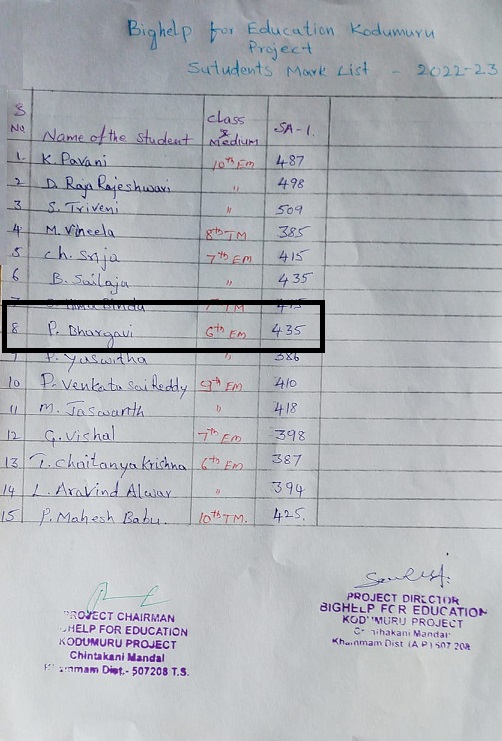 Bighelp for Education Kodumuru
Project
Sutudents Mark List - 2022-23
S No Name of the Student class & Medium SA-1.
1. K. Pavani 10th EM 487
2 D. Raja Rajeshwari " 498
3 S. Triveni " 509
4 M. Vineela 8th TM 385
5 Ch. Srija 7th EM 415
6 B. Sailaja " 435
7 Hima Bindu TM 415
8 P. Bhargavi 6th EM 435
9 P. Yaswitha " 386
10 P. Venkata Sai Reddy 9th EM 410
11 M. Jaswanth " 418
12 G. Vishal 7th EM 398
13 T. Chaitanya Krishna 6th EM 387
14 L. Aravind Alwar " 394
15 P. Mahesh Babu. 10th TM. 425.
PROJECT CHAIRMAN
GHELP FOR EDUCATION
KODUMURU PROJECT
Chintakani Mandal
Khammam Dist.- 507208 T.S.
PROJECT DIRECTOR
BIGHELP FOR EDUCATION
KODUMURU PROJECT
Chinthakani Mandal
Khammam Dist (A.P) 507 208